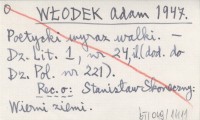 WŁODEK Adam 1947.
Poetycki wyraz walki. –
Dz. Lit. 1, nr. 24, il (dod. do
Dz. Pol. nr 221).
Rec. o: Stanisław Skoneczny:
Wierni ziemi.